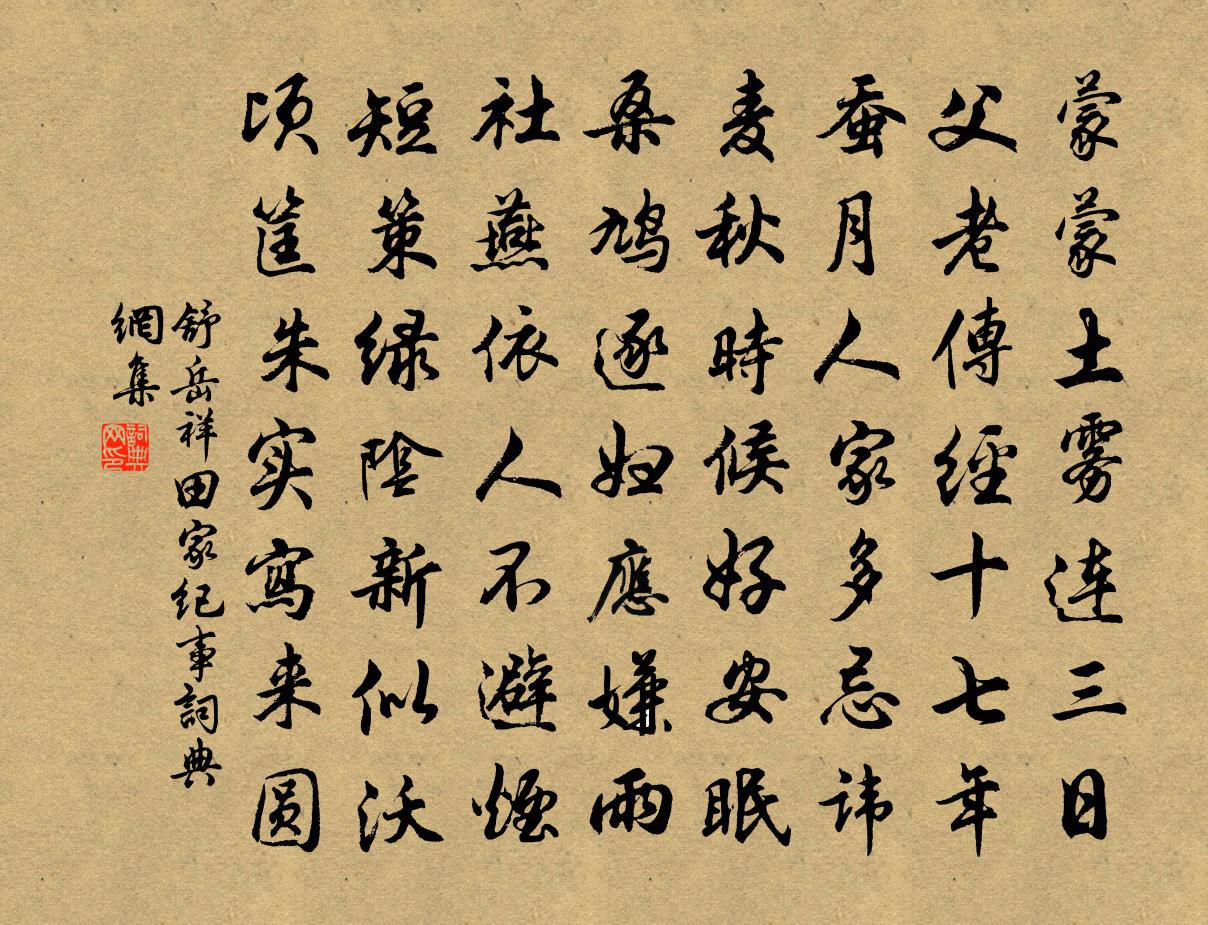 蒙蒙土雾连三日
父老傳經十七年
蚕月人家多忌讳
麦秋時候好安眠
桑鸠逐妇應嫌雨
社燕依人不避煙
短策绿陰新似沃
顷筐朱实寫来圆
舒岳祥田家纪事詞典
網集
詞典
网印